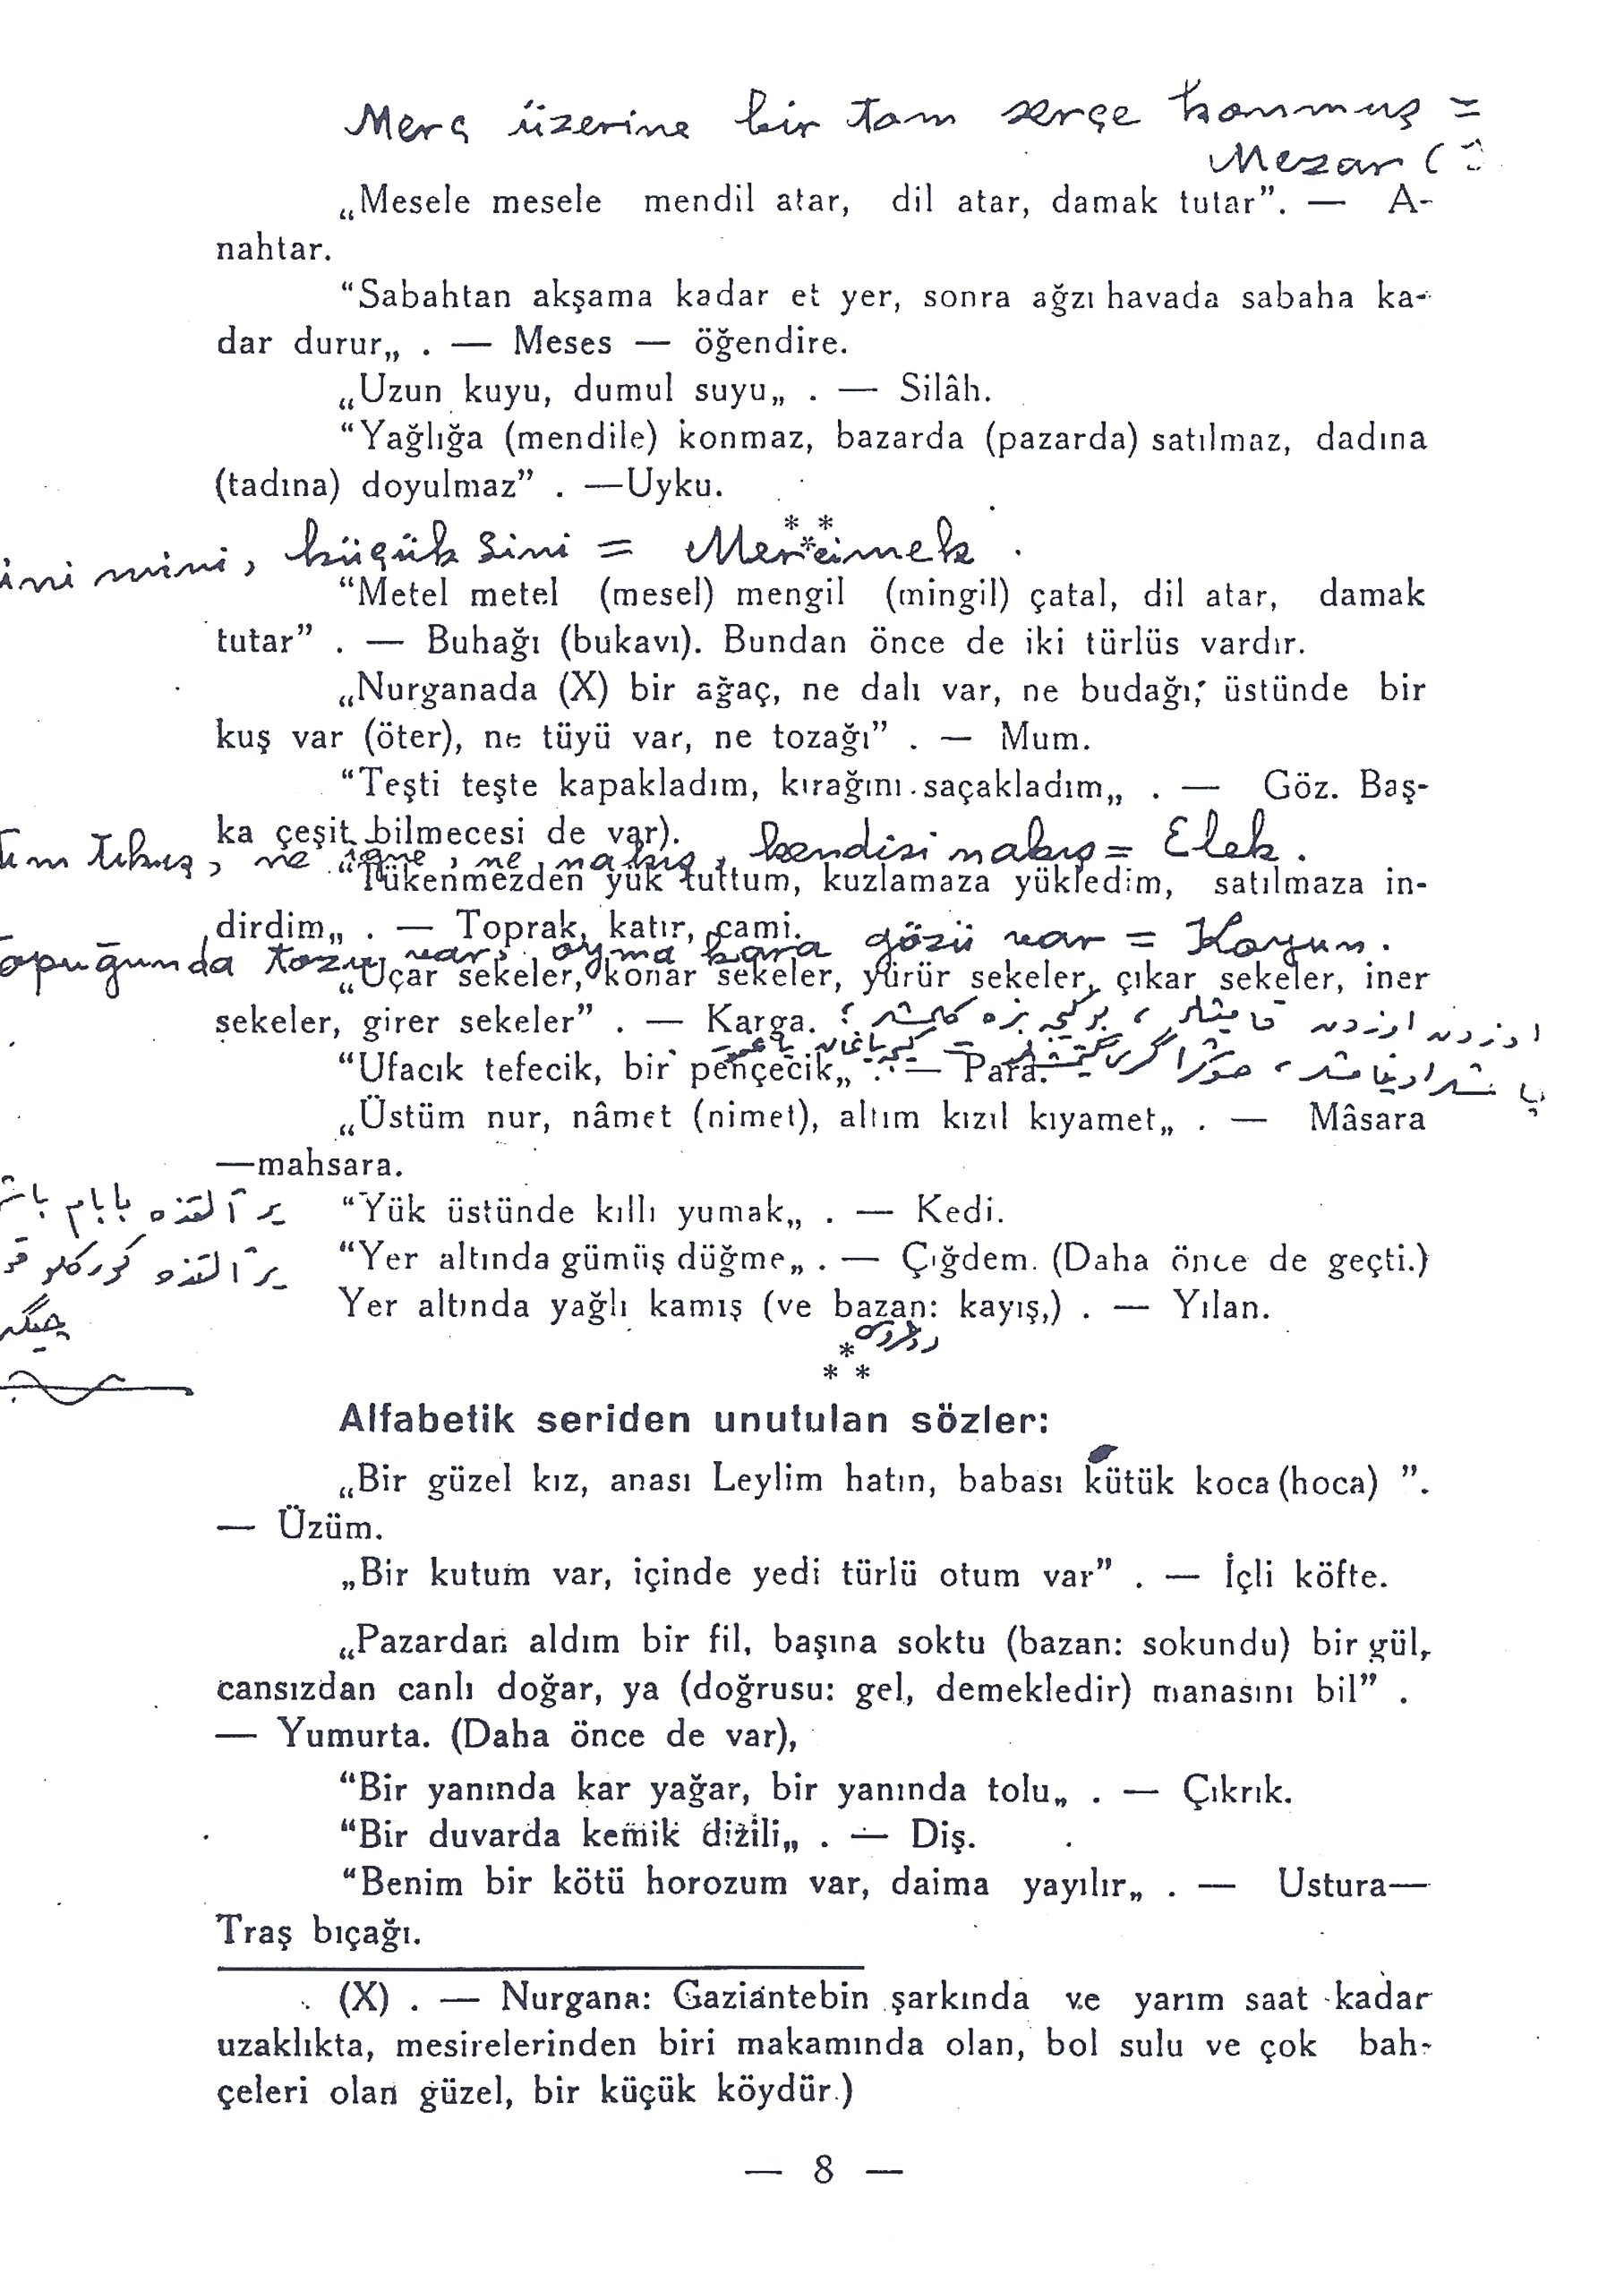 Merç üzerine bir tam serçe konmuş =
Mezar (
„Mesele mesele mendil atar, dil atar, damak tutar”. — A-
nahtar.
“Sabahtan akşama kadar et yer, sonra ağzı havada sabaha ka-
dar durur„ . — Meses — öğendire.
„Uzun kuyu, dumul suyu„ . — Silâh.
“Yağlığa (mendile) konmaz, bazarda (pazarda) satılmaz, dadına
(tadına) doyulmaz” . —Uyku.
* *
*
ini mini, küçük sini = Mercimek .
“Metel metel (mesel) mengil (mingil) çatal, dil atar, damak
tutar” . — Buhağı (bukavı). Bundan önce de iki türlüs vardır.
„Nurganada (X) bir ağaç, ne dalı var, ne budağı; üstünde bir
kuş var (öter), ne tüyü var, ne tozağı” . — Mum.
“Teşti teşte kapakladım, kırağını saçakladım„ . — Göz. Baş-
ka çeşit bilmecesi de var).
tıkış, ne iğne, ne nakış, kendisi nakış = Elek.
“Tükenmezden yük tuttum, kuzlamaza yükledim, satılmaza in-
dirdim„ . — Toprak, katır, cami.
opuğunda tozu var, oyma kara gözü var = Koyun.
„Uçar sekeler, konar sekeler, yürür sekeler, çıkar sekeler, iner
sekeler, girer sekeler” . — Karga.
“Ufacık tefecik, bir pençecik„ . — Para.
„Üstüm nur, nâmet (nimet), altım kızıl kıyamet„ . — Mâsara
—mahsara.
ير آلتنده بابام
“Yük üstünde kıllı yumak„ . — Kedi.
ير آلتنده
“Yer altında gümüş düğme„ . — Çığdem. (Daha önce de geçti.)
Yer altında yağlı kamış (ve bazan: kayış,) . — Yılan.
*
* *
Alfabetik seriden unutulan sözler:
„Bir güzel kız, anası Leylim hatın, babası kütük koca (hoca) ”.
— Üzüm.
„Bir kutum var, içinde yedi türlü otum var” . — İçli köfte.
„Pazardan aldım bir fil, başına soktu (bazan: sokundu) bir gül,
cansızdan canlı doğar, ya (doğrusu: gel, demekledir) manasını bil” .
— Yumurta. (Daha önce de var),
“Bir yanında kar yağar, bir yanında tolu„ . — Çıkrık.
“Bir duvarda kemik dizili„ . — Diş.
“Benim bir kötü horozum var, daima yayılır„ . — Ustura—
Traş bıçağı.
(X) . — Nurgana: Gaziantebin şarkında ve yarım saat kadar
uzaklıkta, mesirelerinden biri makamında olan, bol sulu ve çok bah-
çeleri olan güzel, bir küçük köydür.)
— 8 —